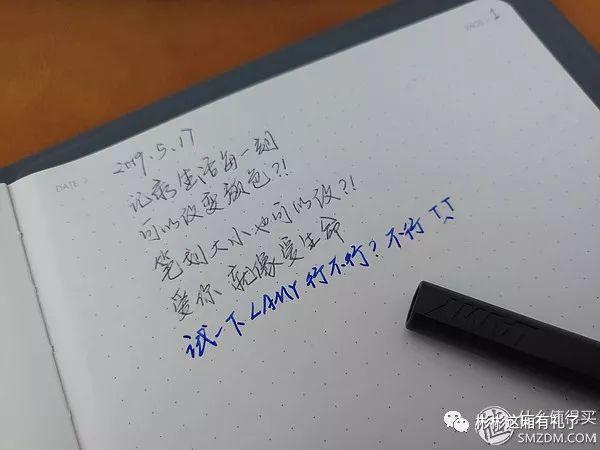 PAGE: 1
DATE:
2019.5.17
记录生活每一刻
可以改变颜色?!
笔刻大小也可以改?!
爱你 就像爱生命
试一下LAMY行不行?不行TT
LAMY
彬彬这厢有礼了
值 什么值得买
SMZDM.COM